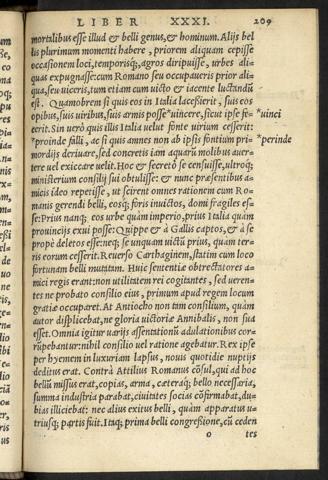 LIBER XXXI. 209
mortalibus esse illud & belli genus, & hominum. Alijs bel
lis plurimum momenti habere, priorem aliquam cepisse
occasionem loci, temporisq;, agros diripuisse, urbes ali-
quas expugnasse: cum Romano seu occupaueris prior ali-
qua, seu uiceris, tum etiam cum uicto & iacente luctandū
est. Quamobrem si quis eos in Italia lacessierit, suis eos
opibus, suis uiribus, suis armis posse *uincere, sicut ipse fe-
cerit. Sin uerò quis illis Italia uelut fonte uirium cesserit:
*proinde falli, ac si quis amnes non ab ipsis fontium pri-
mordijs deriuare, sed concretis iam aquarū molibus auer-
tere uel exiccare uelit. Hoc & secretò se censuisse, ultroq;
ministerium consilij sui obtulisse: & nunc præsentibus a-
micis ideo repetisse, ut scirent omnes rationem cum Ro-
manis gerendi belli, eosq; foris inuictos, domi fragiles es-
se: Prius nanq; eos urbe quàm imperio, prius Italia quàm
prouincijs exui posse: Quippe & à Gallis captos, & à se
propè deletos esse: neq; se unquam uictū prius, quàm ter-
ris eorum cesserit. Reuerso Carthaginem, statim cum loco
fortunam belli mutatam. Huic sententiæ obtrectatores a-
mici regis erant: non utilitatem rei cogitantes, sed ueren-
tes ne probato consilio eius, primum apud regem locum
gratiæ occuparet. At Antiocho non tam consilium, quàm
autor displicebat, ne gloria uictoriæ Annibalis, non sua
esset. Omnia igitur uarijs assentationū adulationibus cor-
rūpebantur: nihil consilio uel ratione agebatur. Rex ipse
per hyemem in luxuriam lapsus, nouis quotidie nuptijs
deditus erat. Contrà Attilius Romanus cōsul, qui ad hoc
bellū missus erat, copias, arma, cæteraq; bello necessaria,
summa industria parabat, ciuitates socias cōfirmabat, du-
bias illiciebat: nec alius exitus belli, quàm apparatus u-
triusq; partis fuit. Itaq; prima belli congressione, cū ceden
o tes
*uinci
*perinde